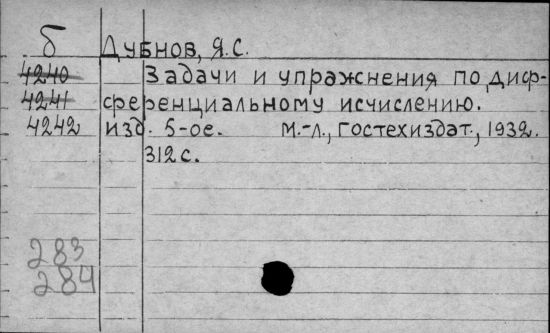 б Дубнов, Я.С.
4240 Задачи и упражнения по диф-
4241 ференциальному исчислению.
4242 изд. 5-ое. М.-Л., Гостехиздат., 1932.
312 с.
283
284